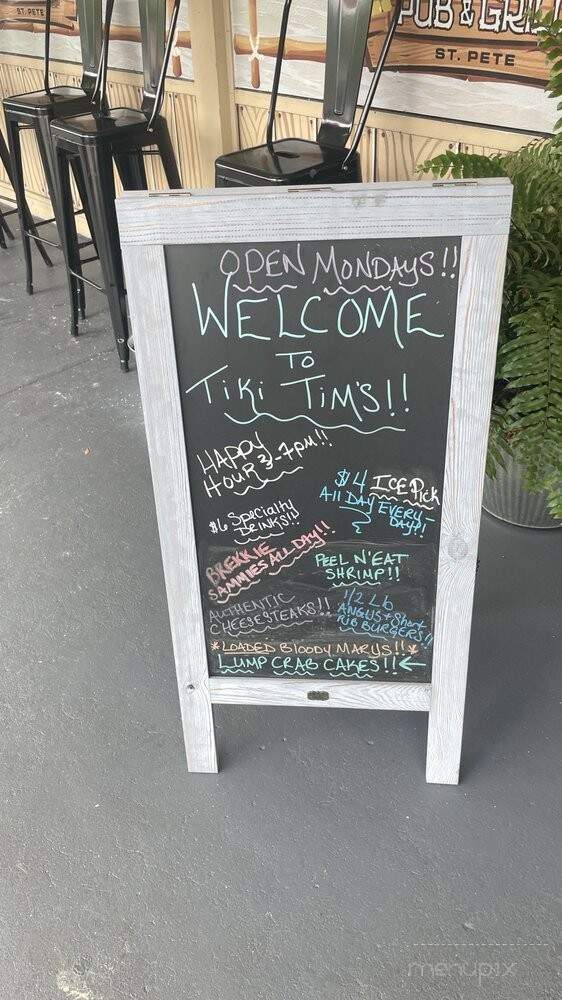 ST. PETE
PUB & GRILL
ST. PETE
OPEN MONDAYS!!
WELCOME
TO
TIKI TIM'S!!
HAPPY
HOUR 3-7PM!!
$4 ICE PICK
All DAY EVERY-
DAY!!
$6 SPECIALTY
DRINKS!!
BREKKIE
SAMMIES ALL DAY!!
PEEL N' EAT
SHRIMP!!
AUTHENTIC
CHEESESTEAKS!!
1/2 Lb
ANGUS + Short
RIB BURGERS!!
*LOADED BLOODY MARYS!!*
LUMP CRAB CAKES!!←
menupix